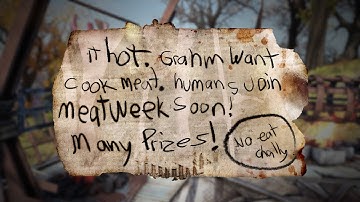 it hot. Grahm want
cook meat. humans join.
meat week soon!
many Prizes!
No eat
chally